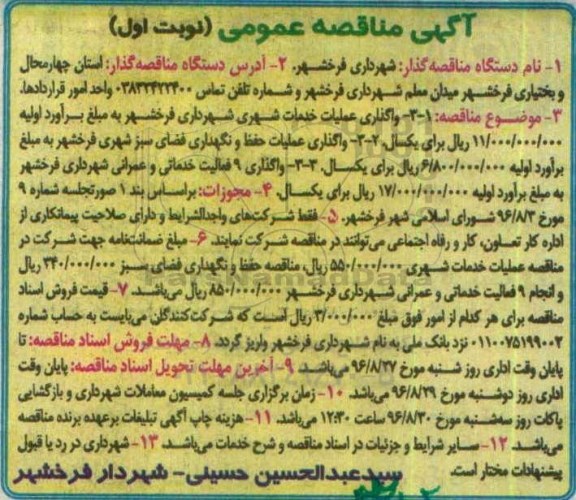 آگهی مناقصه عمومی (نوبت اول)
۱- نام دستگاه مناقصه گذار: شهرداری فرخشهر. ۲- آدرس دستگاه مناقصه گذار: استان چهارمحال
و بختیاری فرخشهر میدان معلم شهرداری فرخشهر و شماره تلفن تماس ۰۳۸۳۲۴۲۲۴۰۰ واحد امور قراردادها.
۳- موضوع مناقصه: ۱-۳- واگذاری عملیات خدمات شهری شهرداری فرخشهر به مبلغ برآورد اولیه
۱۱/۰۰۰/۰۰۰/۰۰۰ ریال برای یکسال. ۲-۳- واگذاری عملیات حفظ و نگهداری فضای سبز شهری فرخشهر به مبلغ
برآورد اولیه ۶/۸۰۰/۰۰۰/۰۰۰ ریال برای یکسال. ۳-۳- واگذاری ۹ فعالیت خدماتی و عمرانی شهرداری فرخشهر
به مبلغ برآورد اولیه ۱۷/۰۰۰/۰۰۰/۰۰۰ ریال برای یکسال. ۴- مجوزات: براساس بند ۱ صورتجلسه شماره ۹
مورخ ۹۶/۸/۳ شورای اسلامی شهر فرخشهر. ۵- فقط شرکت‌های واجدالشرایط و دارای صلاحیت پیمانکاری از
اداره کار تعاون، کار و رفاه اجتماعی می‌توانند در مناقصه شرکت نمایند. ۶- مبلغ ضمانتنامه جهت شرکت در
مناقصه عملیات خدمات شهری ۵۵۰/۰۰۰/۰۰۰ ریال، مناقصه حفظ و نگهداری فضای سبز ۳۴۰/۰۰۰/۰۰۰ ریال
و انجام ۹ فعالیت خدماتی و عمرانی شهرداری فرخشهر ۸۵۰/۰۰۰/۰۰۰ ریال می‌باشد. ۷- قیمت فروش اسناد
مناقصه برای هر کدام از امور فوق مبلغ ۳/۰۰۰/۰۰۰ ریال است که شرکت کنندگان می‌بایست به حساب شماره
۰۱۱۰۰۷۵۱۹۹۰۰۲ نزد بانک ملی به نام شهرداری فرخشهر واریز گردد. ۸- مهلت فروش اسناد مناقصه: تا
پایان وقت اداری روز شنبه مورخ ۹۶/۸/۲۷ می‌باشد. ۹- آخرین مهلت تحویل اسناد مناقصه: پایان وقت
اداری روز دوشنبه مورخ ۹۶/۸/۲۹ می‌باشد. ۱۰- زمان برگزاری جلسه کمیسیون معاملات شهرداری و بازگشایی
پاکات روز سه‌شنبه مورخ ۹۶/۸/۳۰ ساعت ۱۲:۳۰ می‌باشد. ۱۱- هزینه چاپ آگهی تبلیغات برعهده برنده مناقصه
می‌باشد. ۱۲- سایر شرایط و جزئیات در اسناد مناقصه و شرح خدمات می‌باشد. ۱۳- شهرداری در رد یا قبول
پیشنهادات مختار است.
سیدعبدالحسین حسینی- شهردار فرخشهر